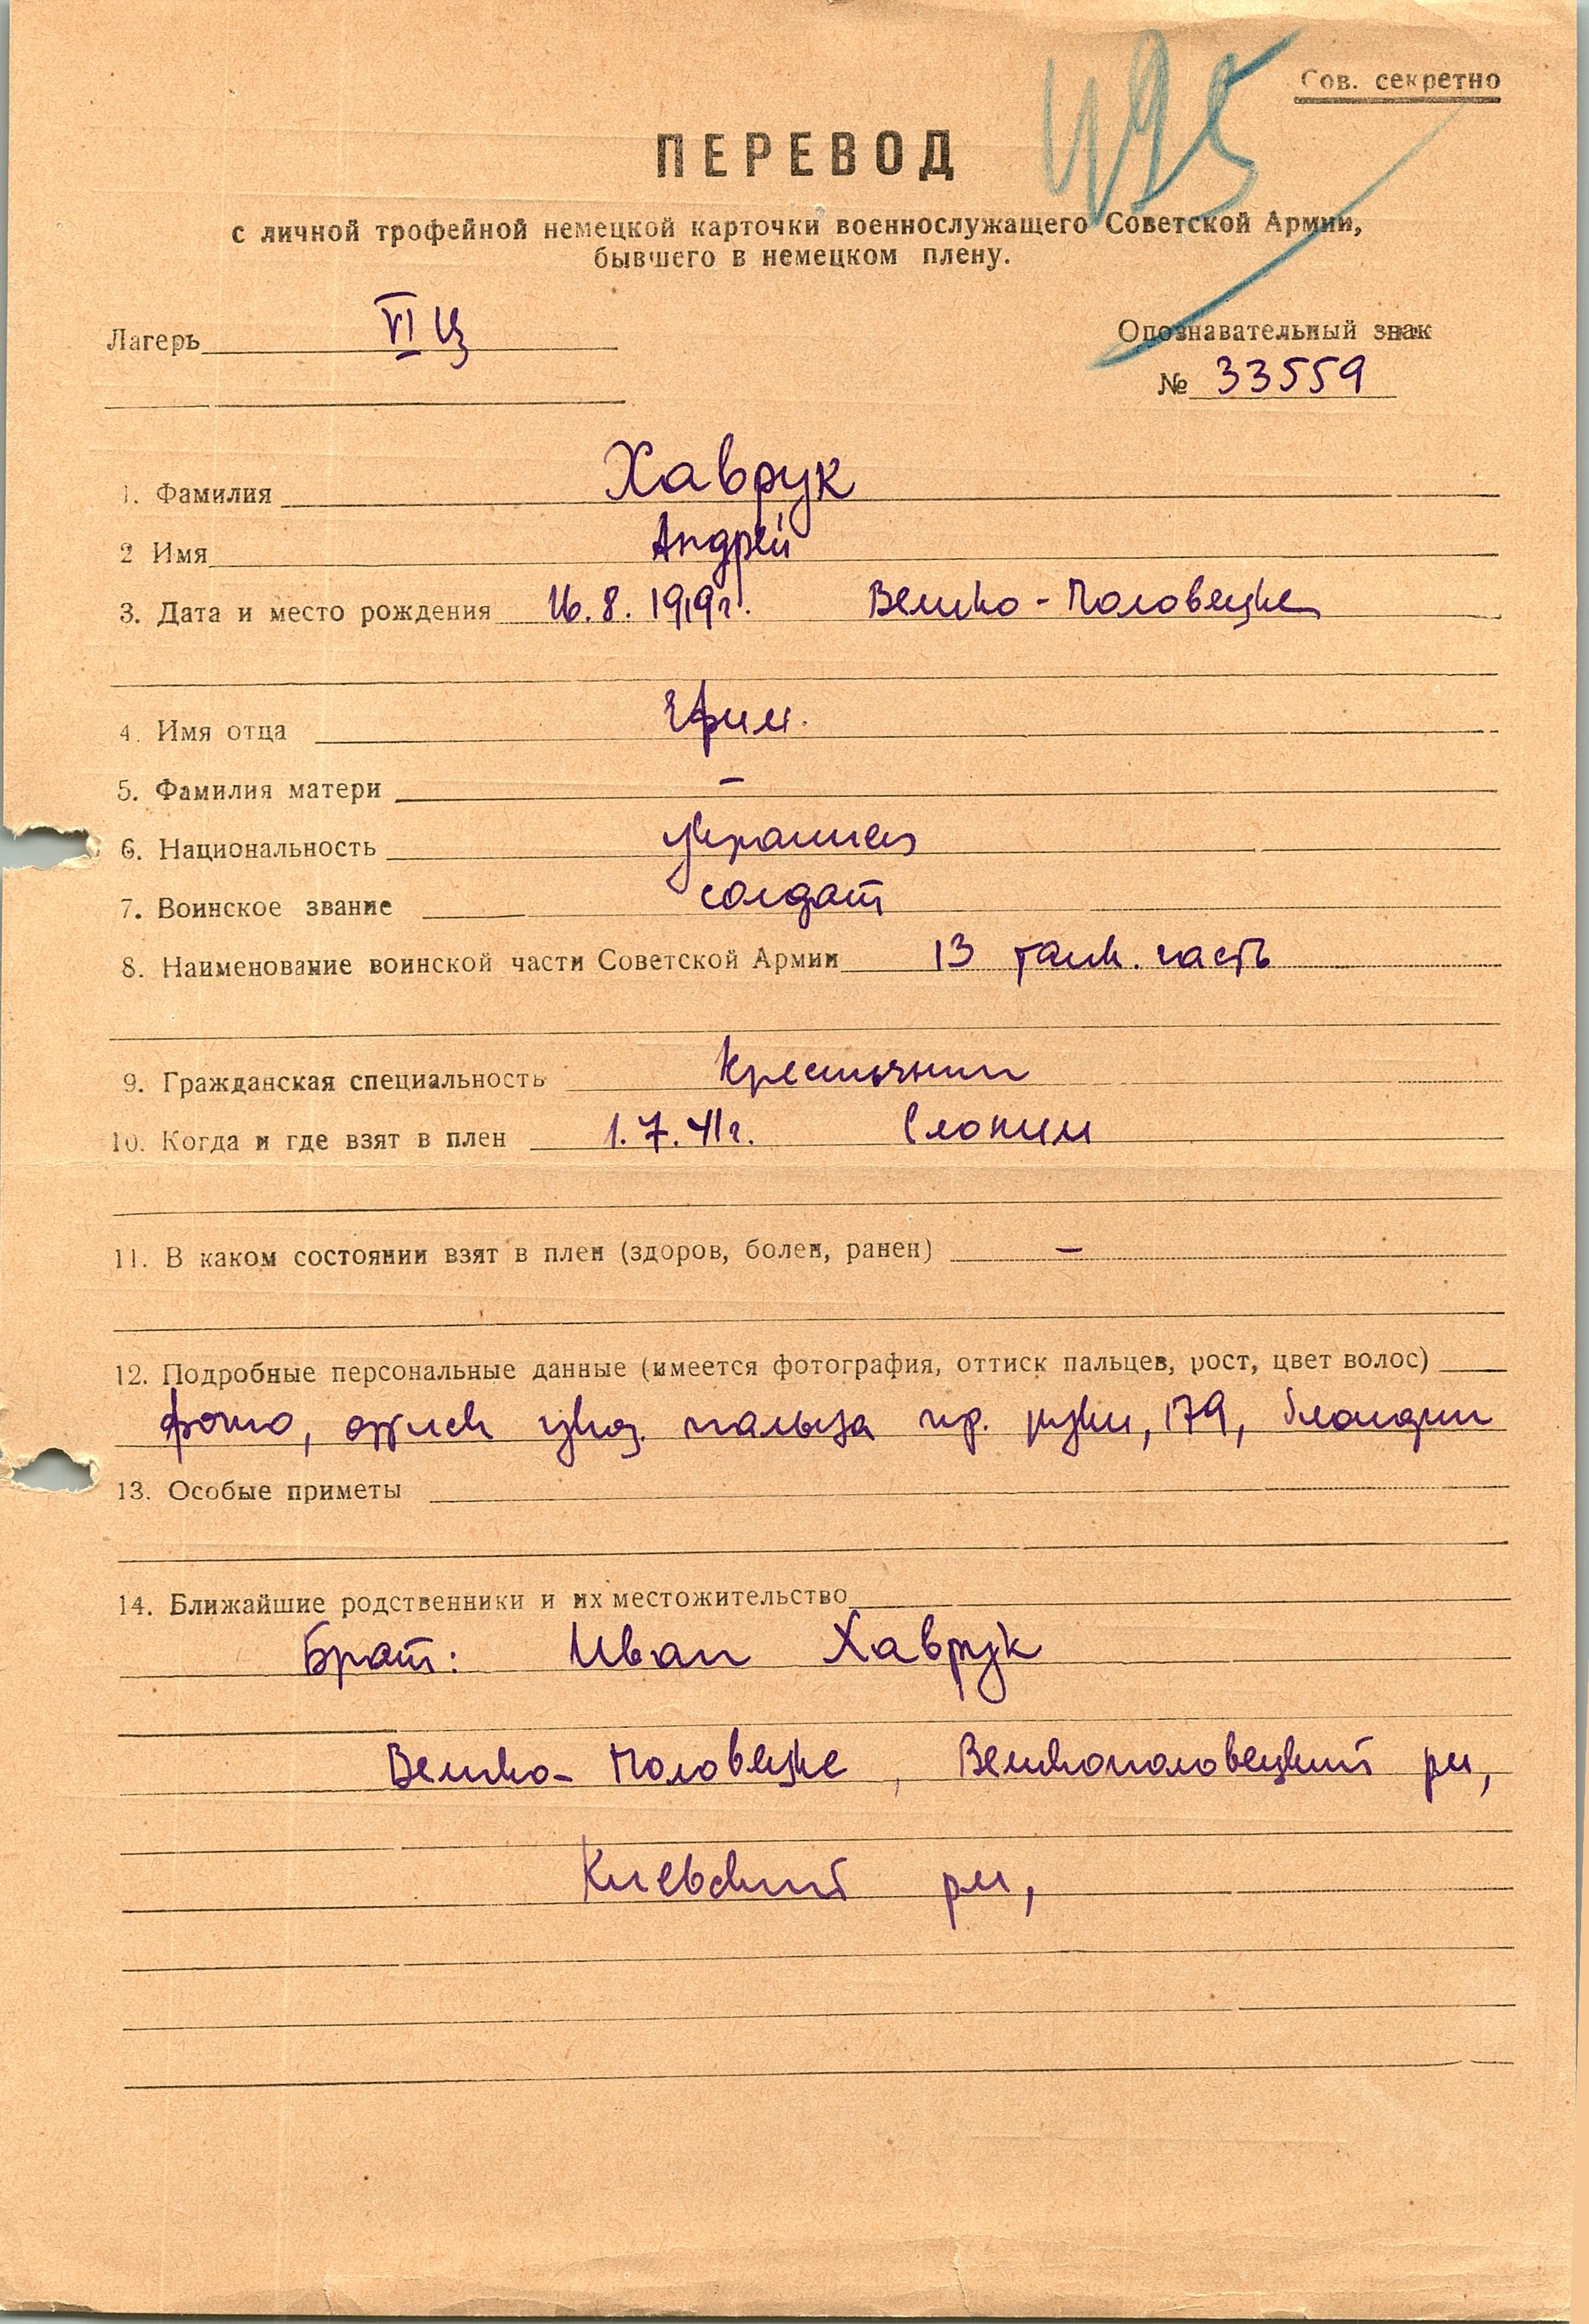 495
Сов. секретно
ПЕРЕВОД
с личной трофейной немецкой карточки военнослужащего Советской Армии,
бывшего в немецком плену.
Лагерь VI Ц
Опознавательный знак
№ 33559
1. Фамилия Хаврук
2 Имя Андрей
3. Дата и место рождения 16.8.1919г. Велико-Половецке
4. Имя отца Ефим.
5. Фамилия матери –
6. Национальность украинец
7. Воинское звание солдат
8. Наименование воинской части Советской Армии 13 танк. часть
9. Гражданская специальность крестьянин
10. Когда и где взят в плен 1.7.41г. Слоним
11. В каком состоянии взят в плен (здоров, болен, ранен) –
12. Подробные персональные данные (имеется фотография, оттиск пальцев, рост, цвет волос)
фото, оттиск указ. пальца пр. руки, 179, блондин
13. Особые приметы
14. Ближайшие родственники и их местожительство
Брат: Иван Хаврук
Велико-Половецке, Великополовецкий рн,
Киевский рн,